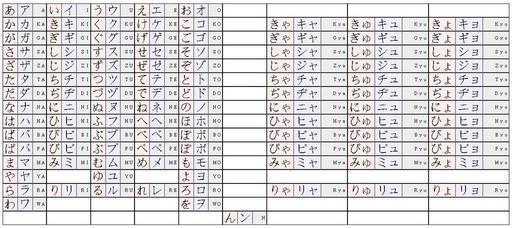 あ ア A い イ I う ウ U え エ E お オ O
か カ KA き キ KI く ク KU け ケ KE こ コ KO きゃ キャ Kya きゅ キュ Kyu きょ キョ Kyo
が ガ GA ぎ ギ GI ぐ グ GU げ ゲ GE ご ゴ GO ぎゃ ギャ Gya ぎゅ ギュ Gyu ぎょ ギョ Gyo
さ サ SA し シ SI す ス SU せ セ SE そ ソ SO しゃ シャ Sya しゅ シュ Syu しょ ショ Syo
ざ ザ ZA じ ジ ZI ず ズ ZU ぜ ゼ ZE ぞ ゾ ZO じゃ ジャ Zya じゅ ジュ Zyu じょ ジョ Zyo
た タ TA ち チ TI つ ツ TU て テ TE と ト TO ちゃ チャ Tya ちゅ チュ Tyu ちょ チョ Tyo
だ ダ DA ぢ ヂ DI づ ヅ DU で デ DE ど ド DO ぢゃ ヂャ Dya ぢゅ ヂュ Dyu ぢょ ヂョ Dyo
な ナ NA に ニ NI ぬ ヌ NU ね ネ NE の ノ NO にゃ ニャ Nya にゅ ニュ Nyu にょ ニョ Nyo
は ハ HA ひ ヒ HI ふ フ HU へ ヘ HE ほ ホ HO ひゃ ヒャ Hya ひゅ ヒュ Hyu ひょ ヒョ Hyo
ば バ BA び ビ BI ぶ ブ BU べ ベ BE ぼ ボ BO びゃ ビャ Bya びゅ ビュ Byu びょ ビョ Byo
ぱ パ PA ぴ ピ PI ぷ プ PU ぺ ペ PE ぽ ポ PO ぴゃ ピャ Pya ぴゅ ピュ Pyu ぴょ ピョ Pyo
ま マ MA み ミ MI む ム MU め メ ME も モ MO みゃ ミャ Mya みゅ ミュ Myu みょ ミョ Myo
や ヤ YA ゆ ユ YU よ ヨ YO
ら ラ RA り リ RI る ル RU れ レ RE ろ ロ RO りゃ リャ Rya りゅ リュ Ryu りょ リョ Ryo
わ ワ WA を ヲ WO
ん ン N